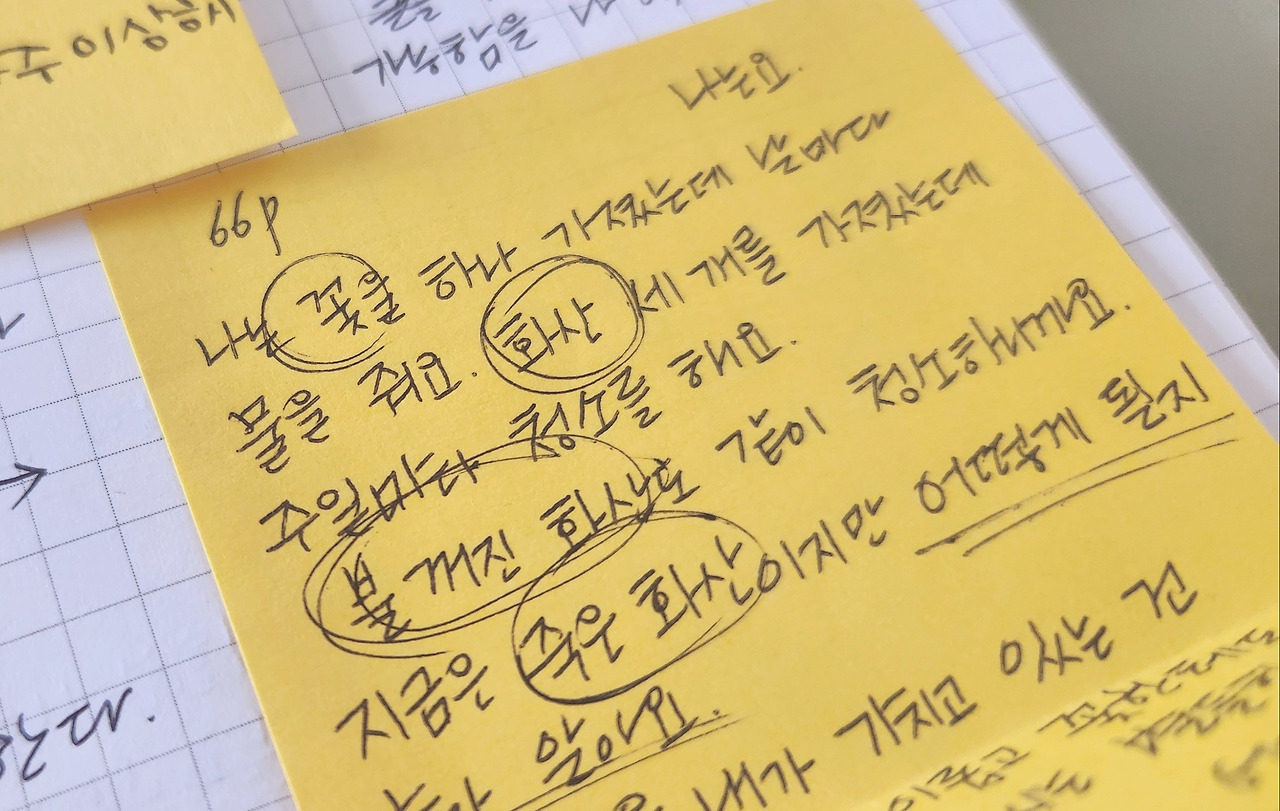 주이상승
가능함을
나는요.
66p
나는 꽃을 하나 가졌는데 날마다
물을 줘요. 화산 세 개를 가졌는데
주일마다 청소를 해요.
불 꺼진 화산도 같이 청소하니까요.
지금은 죽은 화산이지만 어떻게 될지
알아요.
내가 가지고 있는 건